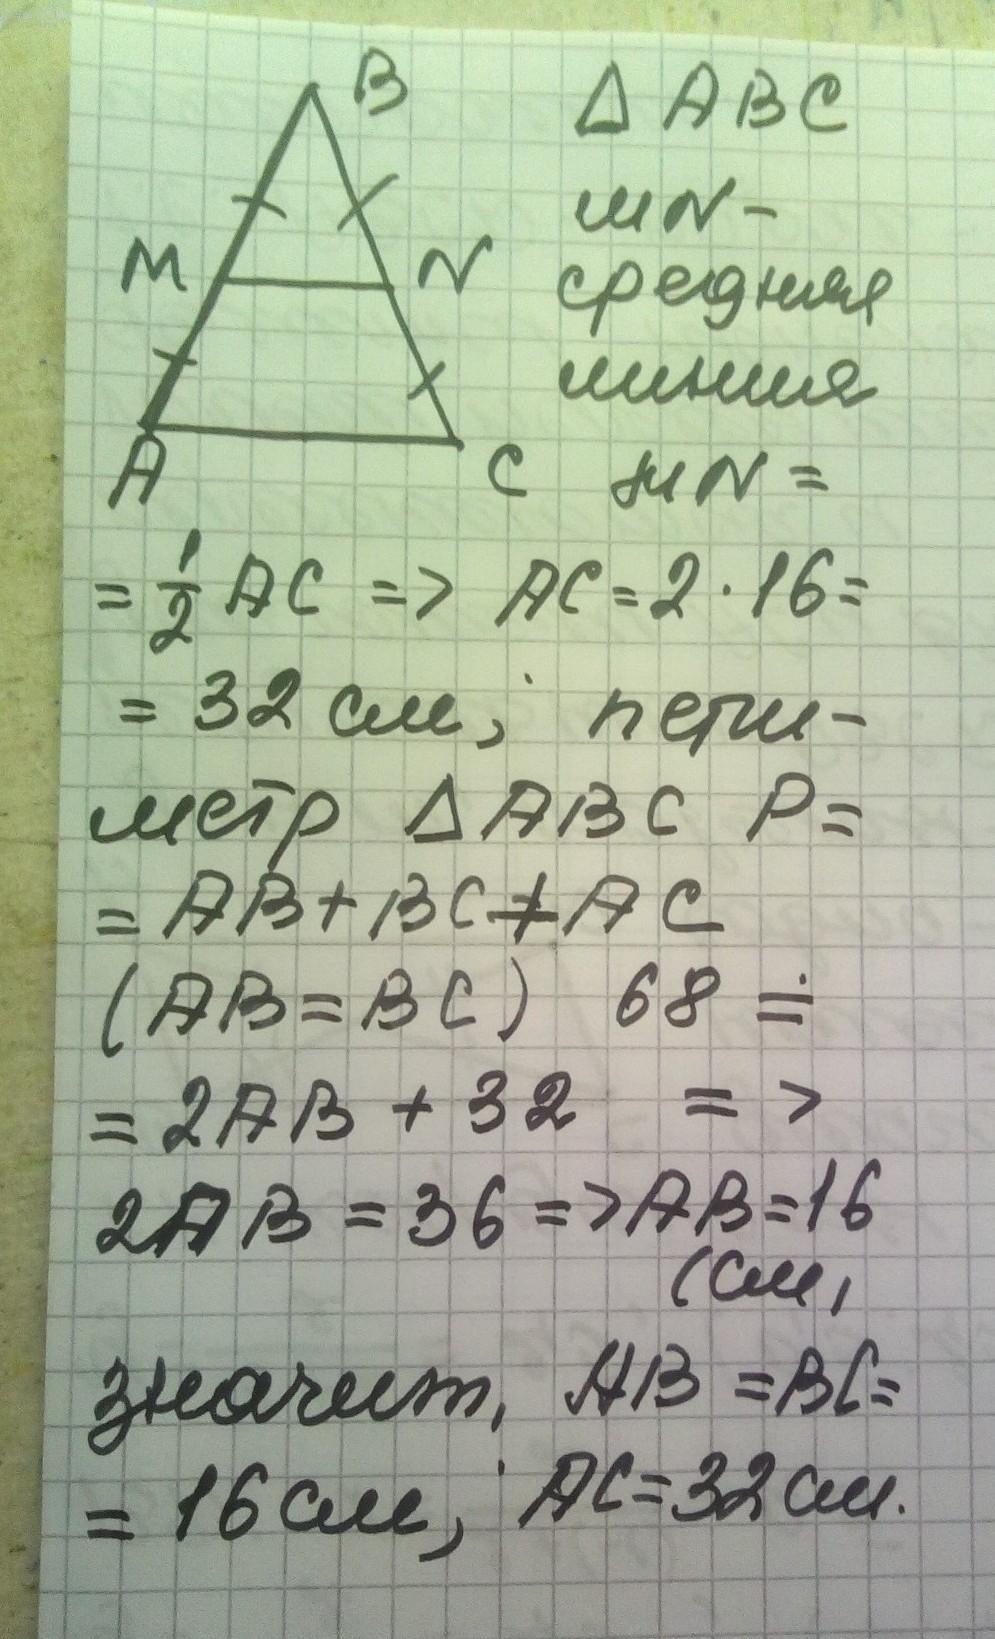 B
Δ ABC
MN -
M
N
средняя
линия
A
C
MN =
= 1/2 AC => AC = 2 · 16 =
= 32 см; пери-
метр Δ ABC P =
= AB + BC + AC
(AB = BC) 68 =
= 2AB + 32 =>
2AB = 36 => AB = 16
(см,
значит, AB = BC =
= 16 см; AC = 32 см.